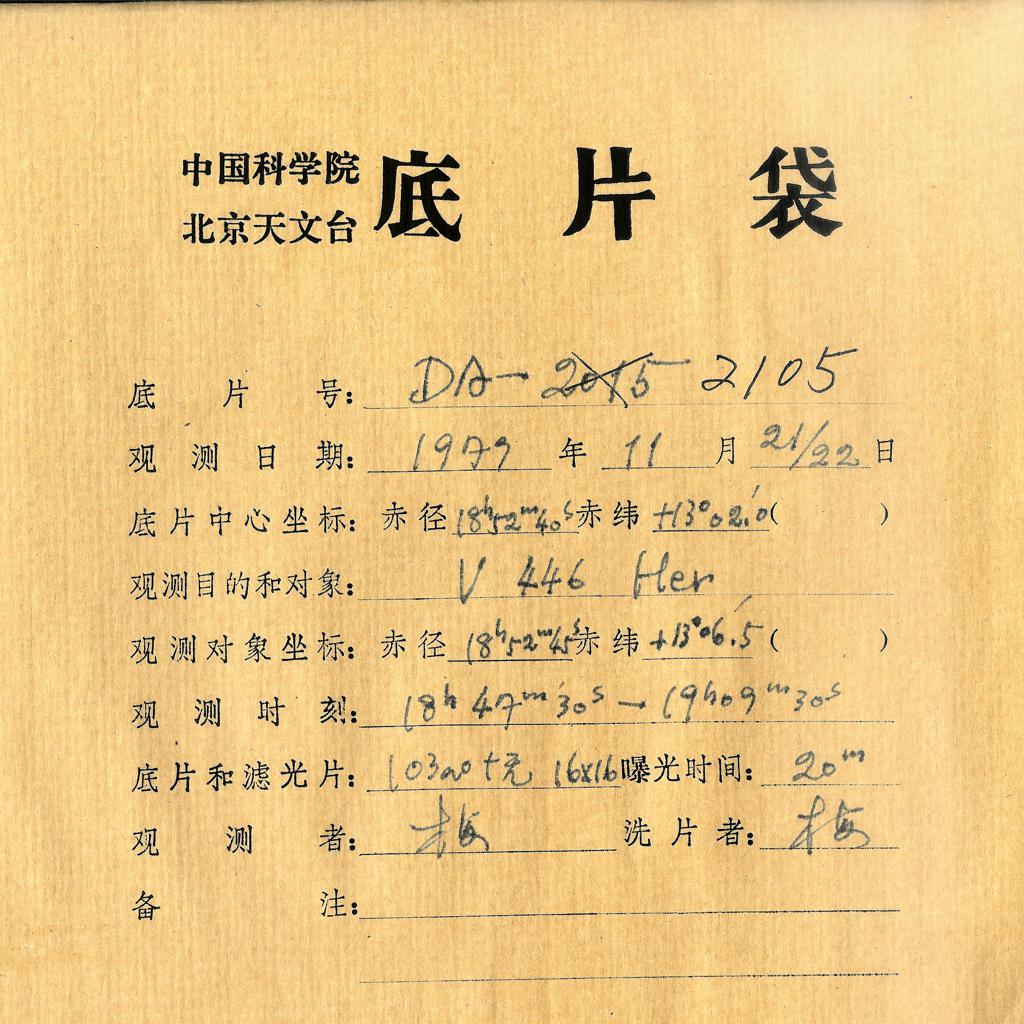 中国科学院
北京天文台
底片袋
底片号: DA- 2015 2105
观测日期: 1979 年 11 月 21/22 日
底片中心坐标: 赤径 18h52m40s 赤纬 +13°02.'0 ( )
观测目的和对象: V 446 Her
观测对象坐标: 赤径 18h52m45s 赤纬 +13°06.'5 ( )
观测时刻: 18h 47m 30s — 19h09m30s
底片和滤光片: 103aO+无 16x16 曝光时间: 20m
观测者: 梅 洗片者: 梅
备注: